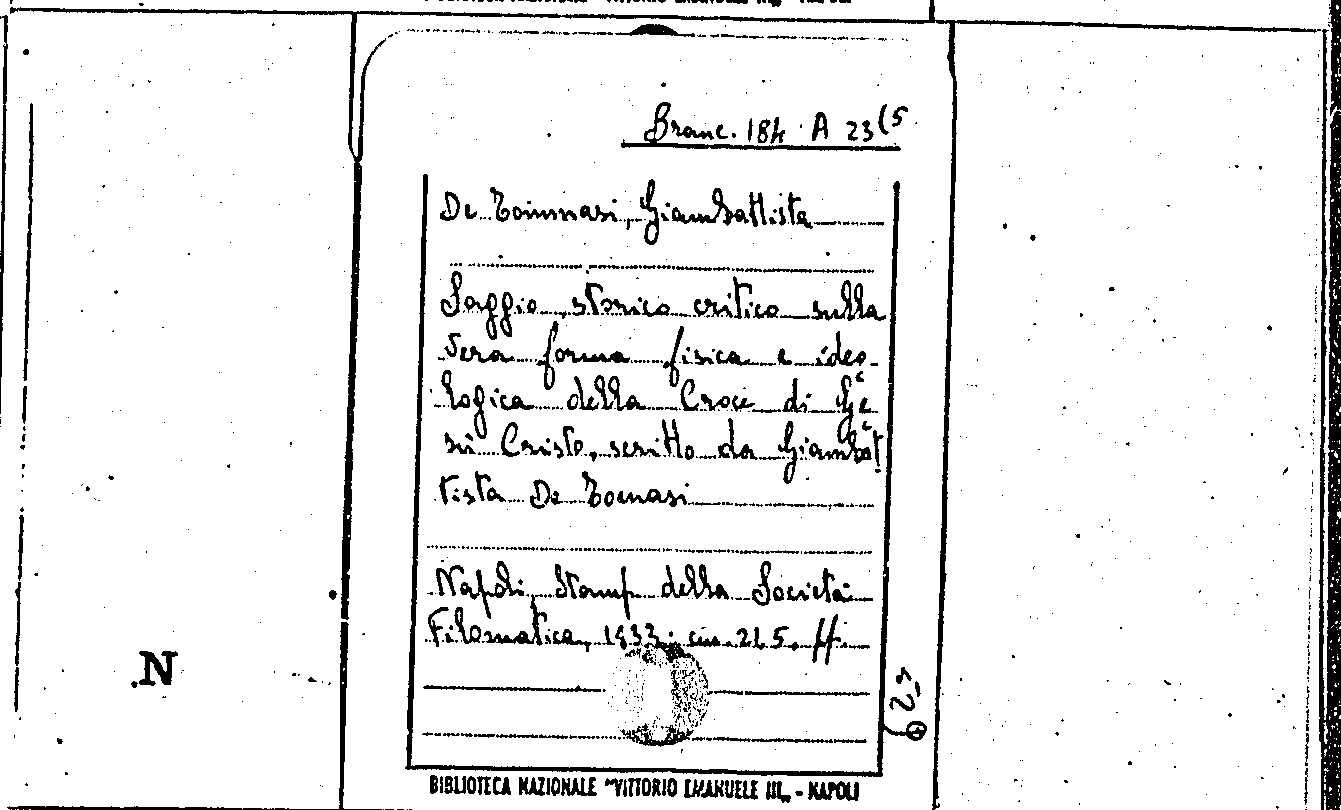 Branc. 184 A 23(5
De Tommasi, Giambattista
Saggio storico critico sulla
vera forma fisica e ideo-
logica della Croce di Ge-
sù Cristo, scritto da Giambat-
tista De Tomasi
Napoli, Stamp. della Società
Filomatica, 1833; cm. 21,5, pp.
N
BIBLIOTECA NAZIONALE "VITTORIO EMANUELE III„ - NAPOLI